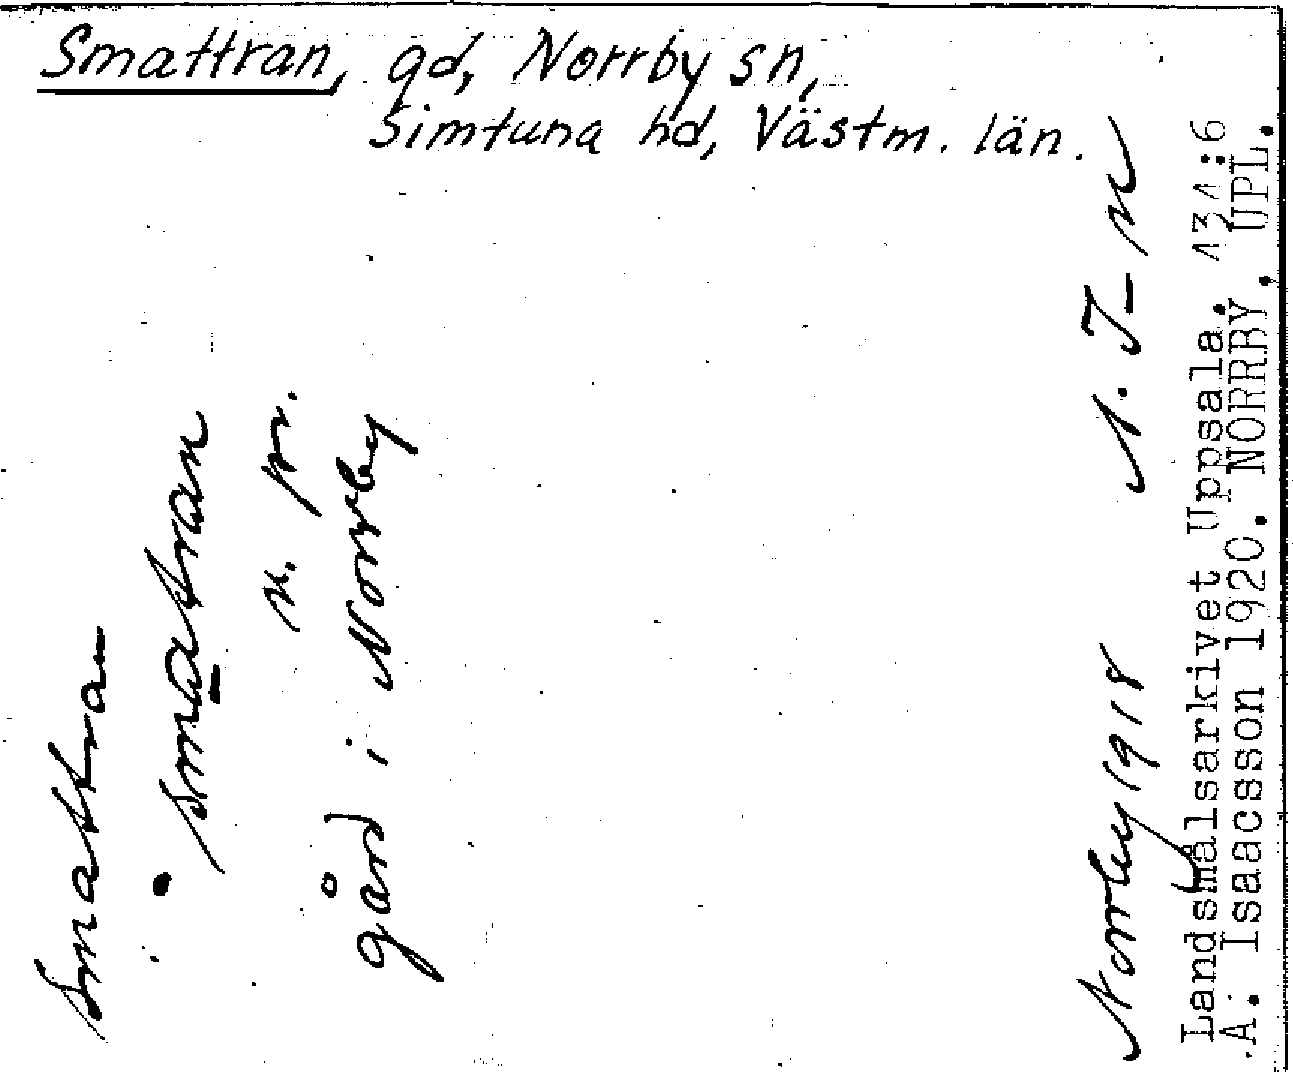 Smattran, gd, Norrby sn,
Simtuna hd, Västm. län.
Smattran
smatran
n. pr.
gård i Norrby
Norrby 1918
N. J-n
Landsmålsarkivet Uppsala. 434:6
A. Isaacsson 1920. NORRBY, UPL.